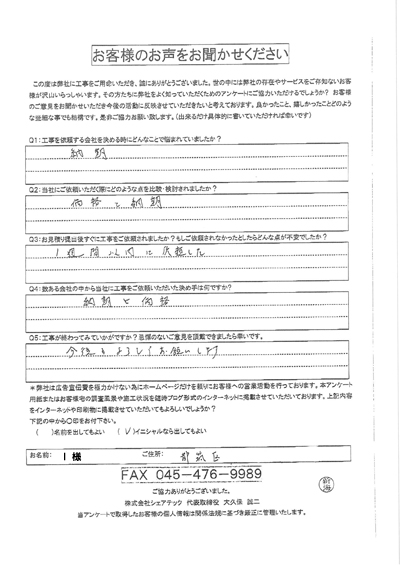 お客様のお声をお聞かせください
この度は弊社に工事をご用命いただき、誠にありがとうございました。世の中には弊社の存在やサービスをご存知ないお客
様が沢山いらっしゃいます。その方たちに弊社をよく知っていただくためのアンケートにご協力いただけるでしょうか? お客様
のご意見をお聞かせいただき今後の活動に反映させていただきたいと考えております。良かったこと、嬉しかったことどのよう
な些細な事でも結構です。是非ご協力お願い致します。(出来るだけ具体的に書いていただければ幸いです)
Q1:工事を依頼する会社を決める時にどんなことで悩まれていましたか?
納期
Q2:当社にご依頼いただく際にどのような点を比較・検討されましたか?
価格と納期
Q3:お見積り提出後すぐに工事をご依頼されましたか?もしご依頼されなかったとしたらどんな点が不安でしたか?
1週間以内に依頼した
Q4:数ある会社の中から当社に工事をご依頼いただいた決め手は何ですか?
納期と価格
Q5:工事が終わってみていかがですか?忌憚のないご意見を頂戴できましたら幸いです。
今後もよろしくお願いします
*弊社は広告宣伝費を極力かけない為にホームページだけを頼りにお客様への営業活動を行っております。本アンケート
用紙またはお客様宅の調査風景や施工状況を随時ブログ形式のインターネットに掲載させていただいております。上記内容
をインターネットや印刷物に掲載させていただいてもよろしいでしょうか?
下記の中から〇印をお付下さい。
( )名前を出してもよい (∨)イニシャルなら出してもよい
お名前: I 様 ご住所: 都筑区
FAX 045-476-9989
ご協力ありがとうございました。
株式会社シェアテック 代表取締役 大久保 誠二
当アンケートで取得したお客様の個人情報は関係法規に基づき厳正に管理いたします。